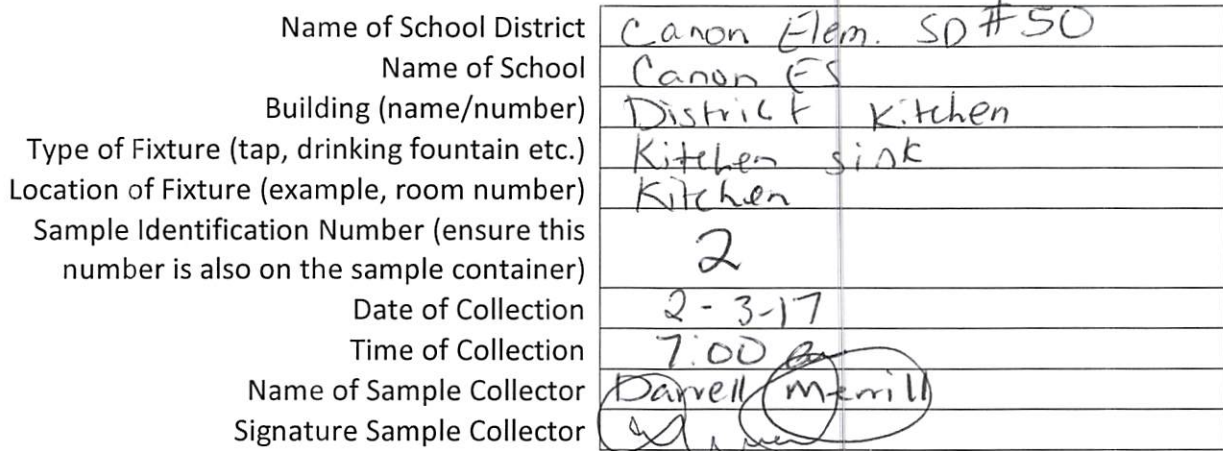 Name of School District Canon Elem. SD #50
Name of School Canon ES
Building (name/number) District Kitchen
Type of Fixture (tap, drinking fountain etc.) Kitchen sink
Location of Fixture (example, room number) Kitchen
Sample Identification Number (ensure this
number is also on the sample container) 2
Date of Collection 2-3-17
Time of Collection 7:00
Name of Sample Collector Darrell Merrill
Signature Sample Collector